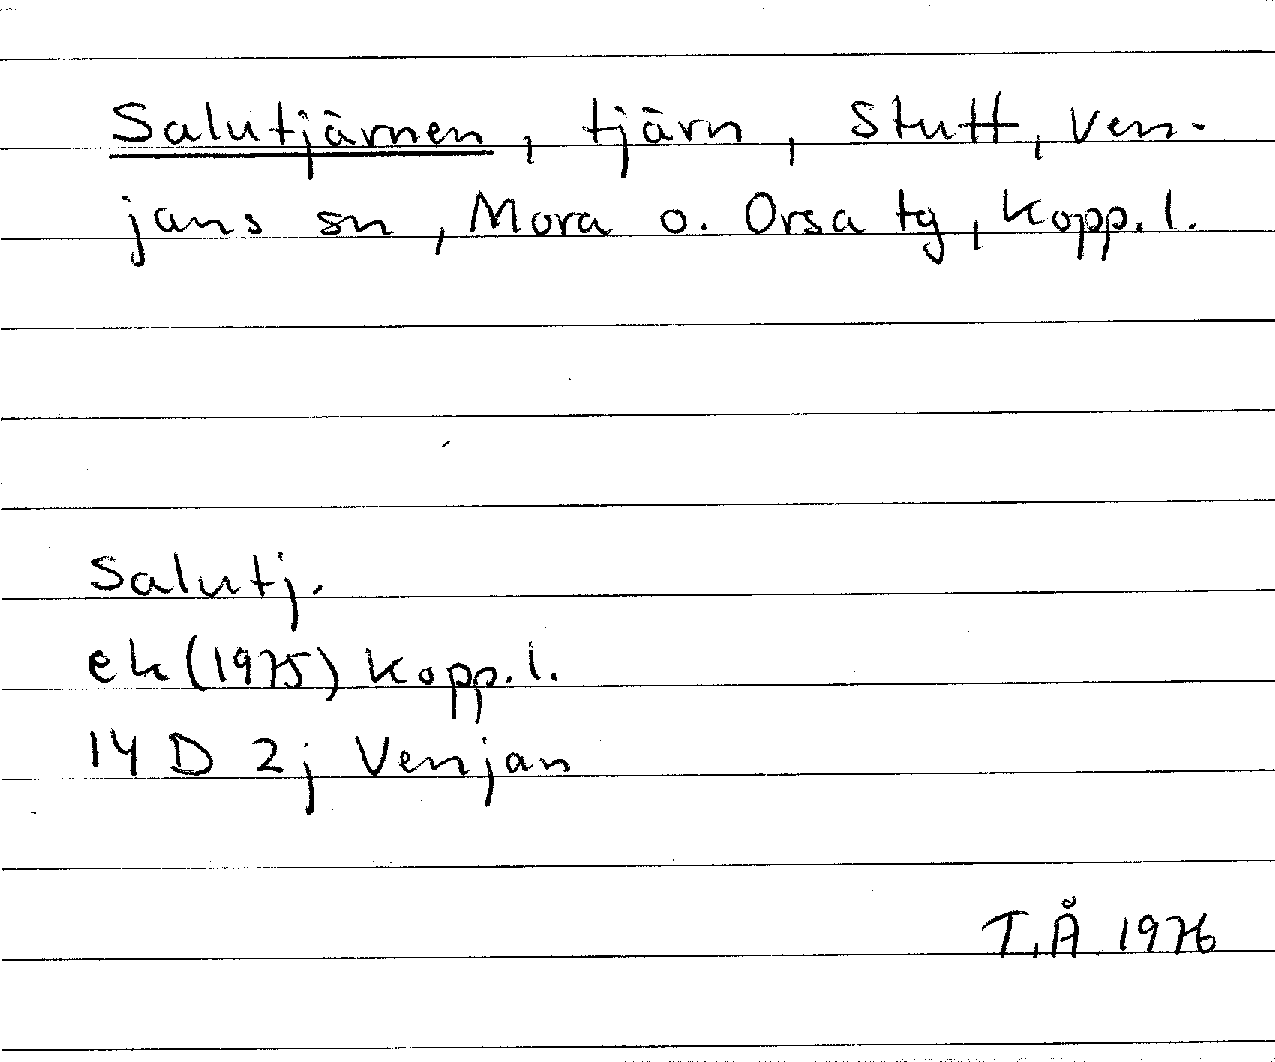 Salutjärnen, tjärn, Stutt, Ven-
jans sn, Mora o. Orsa tg, Kopp.l.
Salutj.
ek (1975) Kopp.l.
14 D 2j Venjan
T.Å 1976